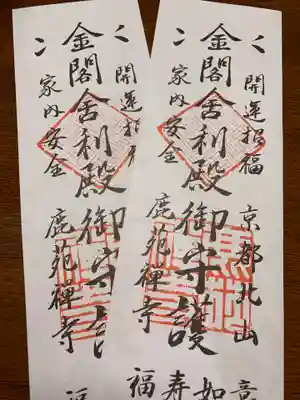 開運招福
京都北山
金閣舎利殿御守護
家内安全
鹿苑禅寺
如意
寿福
開運招
金閣舎利殿御守護
家内安全
鹿苑禅寺
福